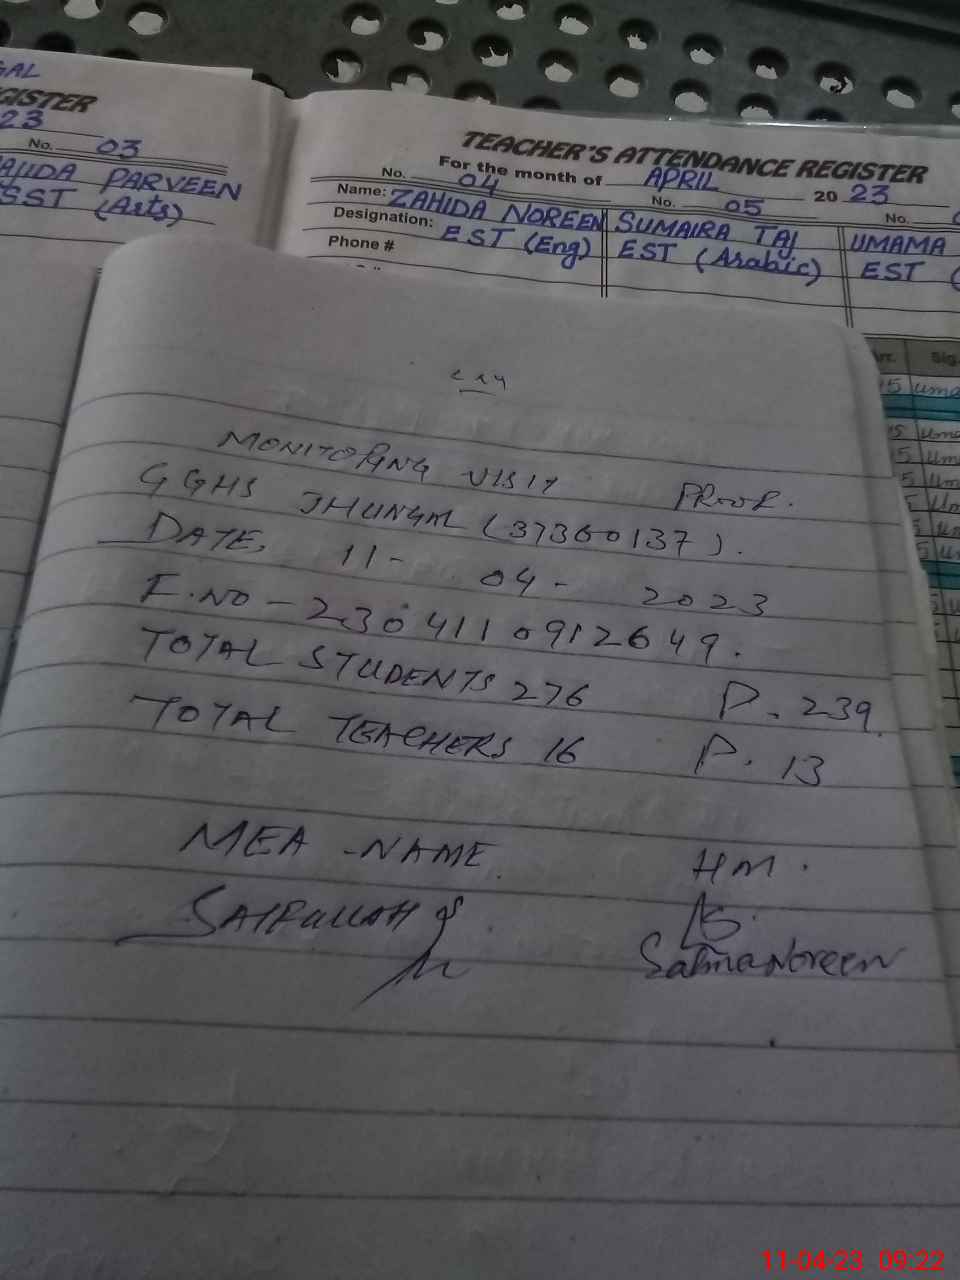 GAL
GISTER
23
No. 03
AHIDA PARVEEN
SST (Arts)
TEACHER'S ATTENDANCE REGISTER
For the month of APRIL 2023
No. 04
No. 05
No.
Name: ZAHIDA NOREEN
SUMAIRA TAJ
UMAMA
Designation: EST (Eng)
EST (Arabic)
EST (
Phone #
Arr.
Sig.
MONITORING VISIT PROOF.
GGHS JHUNGAL (37360137).
DATE, 11-04-2023
F.NO-230411091 2649.
TOTAL STUDENTS 276 P. 239
TOTAL TEACHERS 16 P. 13
MEA-NAME HM.
SAIFULLAH
Salma Noreen
11-04-23 09:22